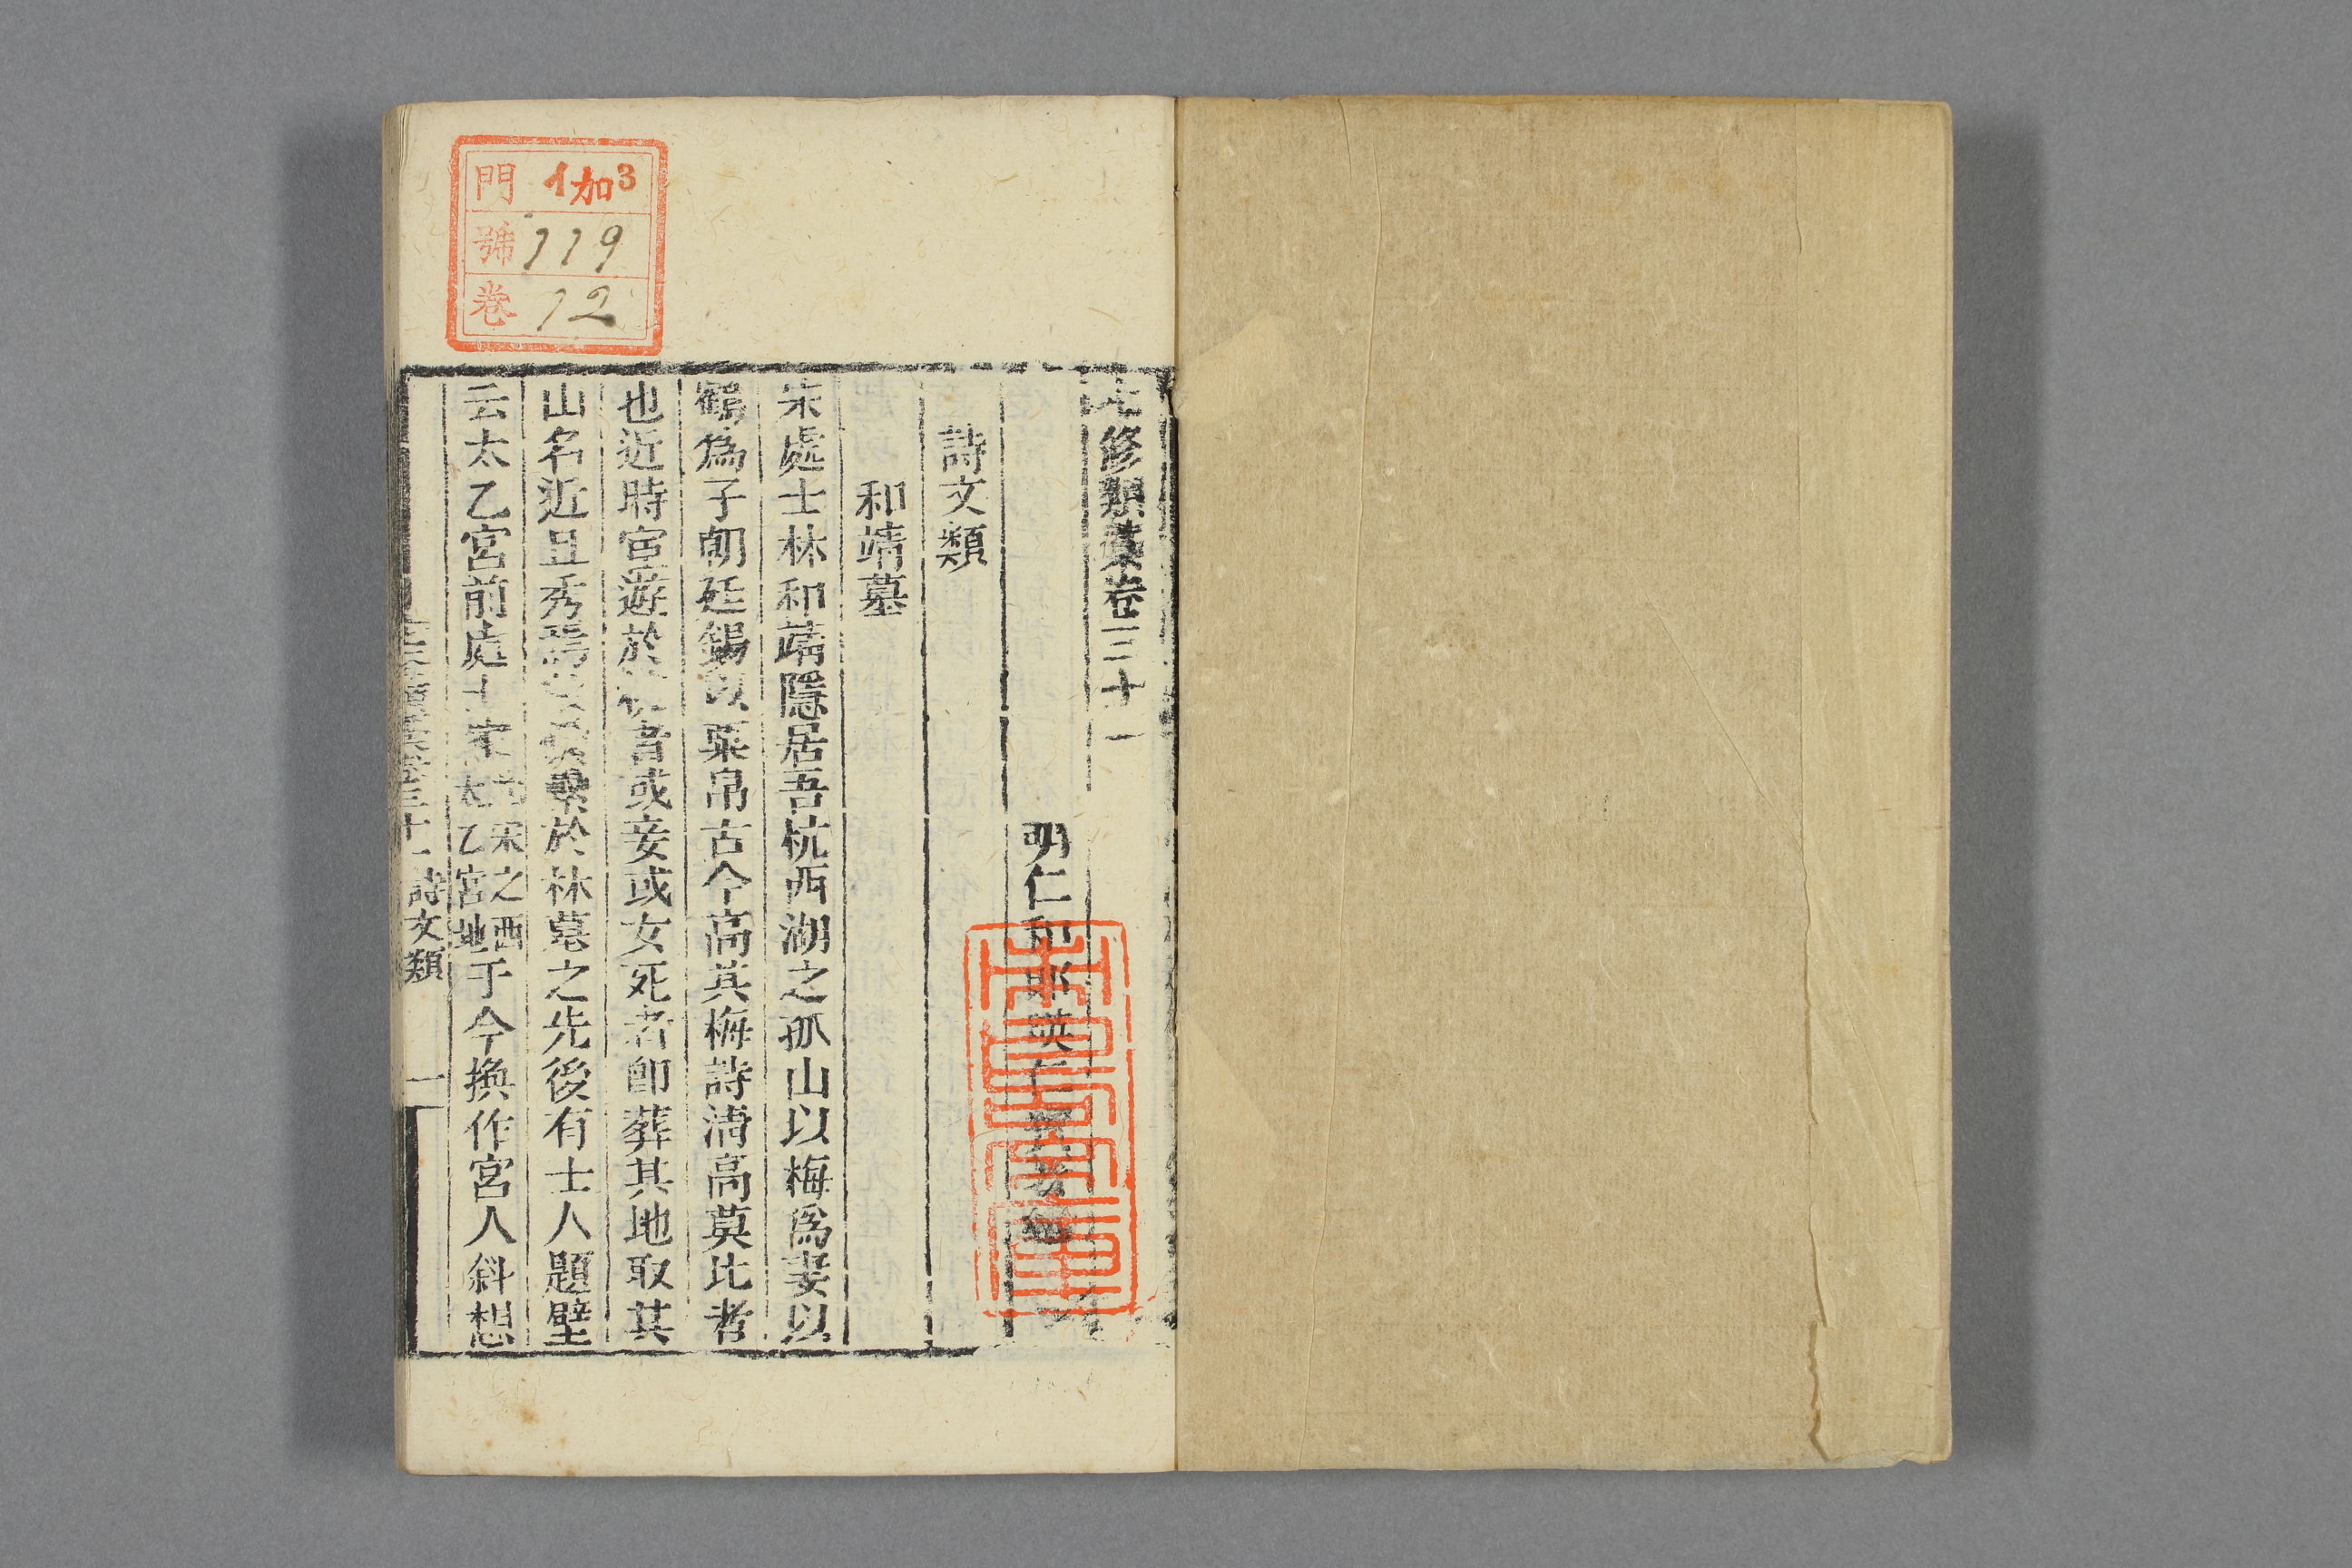 門 伽3
號 119
卷 12
七修類藁卷三十一
明仁和郎瑛仁寶著
詩文類
和靖墓
宋處士林和靖隱居吾杭西湖之孤山以梅爲妻以
鶴爲子朝廷錫以粟帛古今高其梅詩清高莫比者
也近時宦遊於 者或妾或女死者卽葬其地取其
山名近且秀焉 纍纍於林墓之先後有士人題壁
云太乙宮前處士家 宋之西太乙宮地于今換作宮人斜想
七修類藁卷三十一 詩文類 一